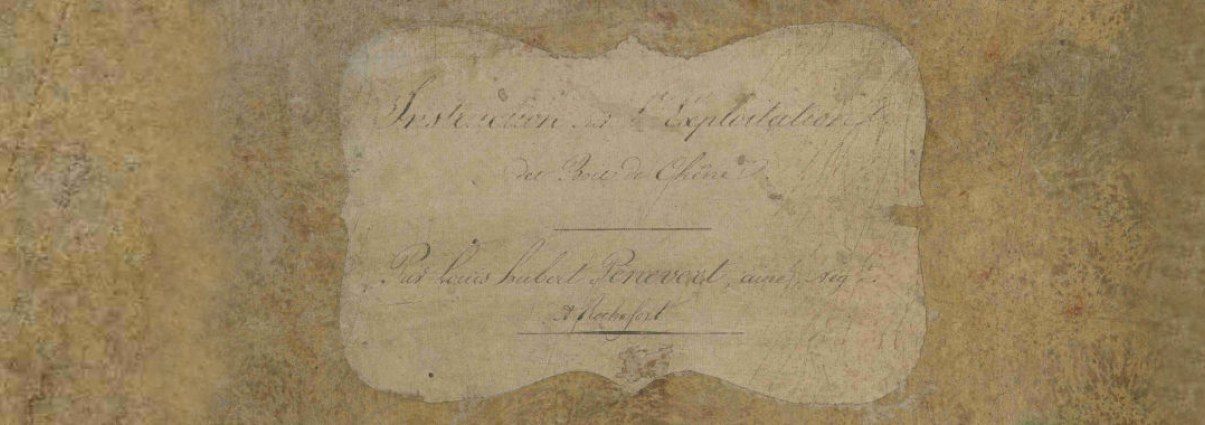 Instruction sur l'Exploitation
du Bois de Chêne
Par Louis hubert Penevert, ainé,
A Rochefort